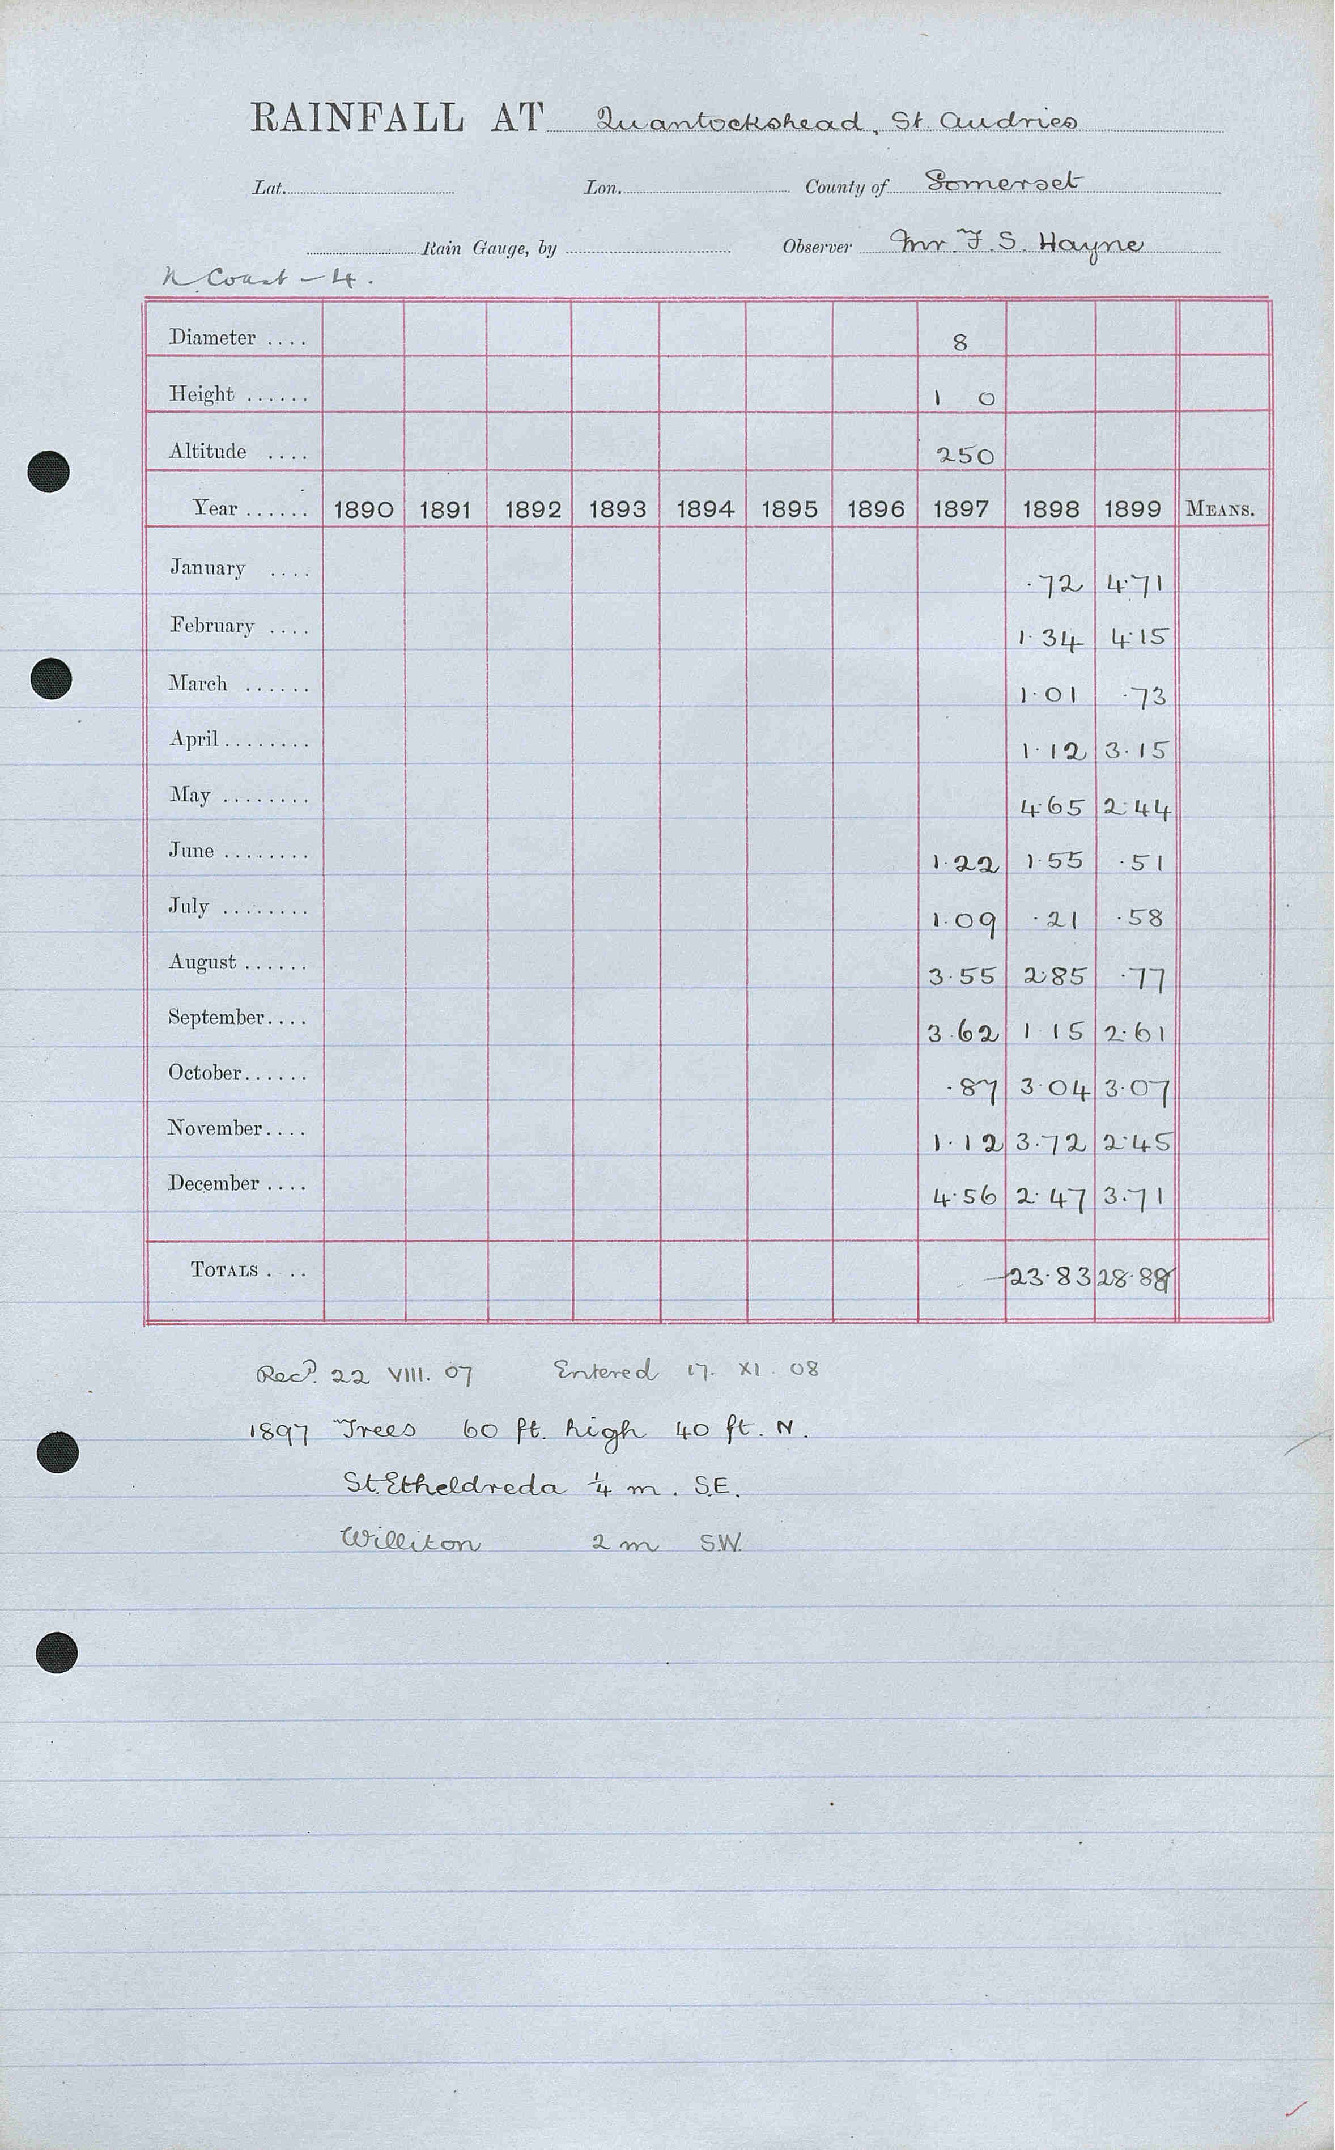 RAINFALL AT Quantockshead, St. Audries
Lat. Lon. County of Somerset
Rain Gauge, by Observer Mr F. S. Hayne
N. Coast – 4.
Diameter .... 8
Height ...... 1 0
Altitude .... 250
Year ...... 1890 1891 1892 1893 1894 1895 1896 1897 1898 1899 MEANS.
January .... ·72 4·71
February .... 1·34 4·15
March ...... 1·01 ·73
April ........ 1·12 3·15
May ........ 4·65 2·44
June ........ 1·22 1·55 ·51
July ........ 1·09 ·21 ·58
August ...... 3·55 2·85 ·77
September.... 3·62 1 15 2·61
October...... ·87 3·04 3·07
November.... 1·12 3·72 2·45
December .... 4·56 2·47 3·71
TOTALS . .. — 23·83 28·88
Recd. 22 VIII. 07 Entered 17. XI. 08
1897 Trees 60 ft. high 40 ft. N.
St. Etheldreda ¼ m. S.E.
Williton 2 m S.W.